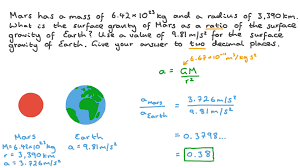 Mars has a mass of 6.42×10²³ kg and a radius of 3,390 km.
What is the surface gravity of Mars as a ratio of the surface
gravity of Earth? Use a value of 9.81 m/s² for the surface
gravity of Earth. Give your answer to two decimal places.
6.67×10⁻¹¹ m³/kg s²
a = GM/r²
a Mars / a Earth = 3.726 m/s² / 9.81 m/s²
= 0.3798...
= 0.38
Mars
M = 6.42×10²³ kg
r = 3,390 km
a = 3.726 m/s²
Earth
a = 9.81 m/s²